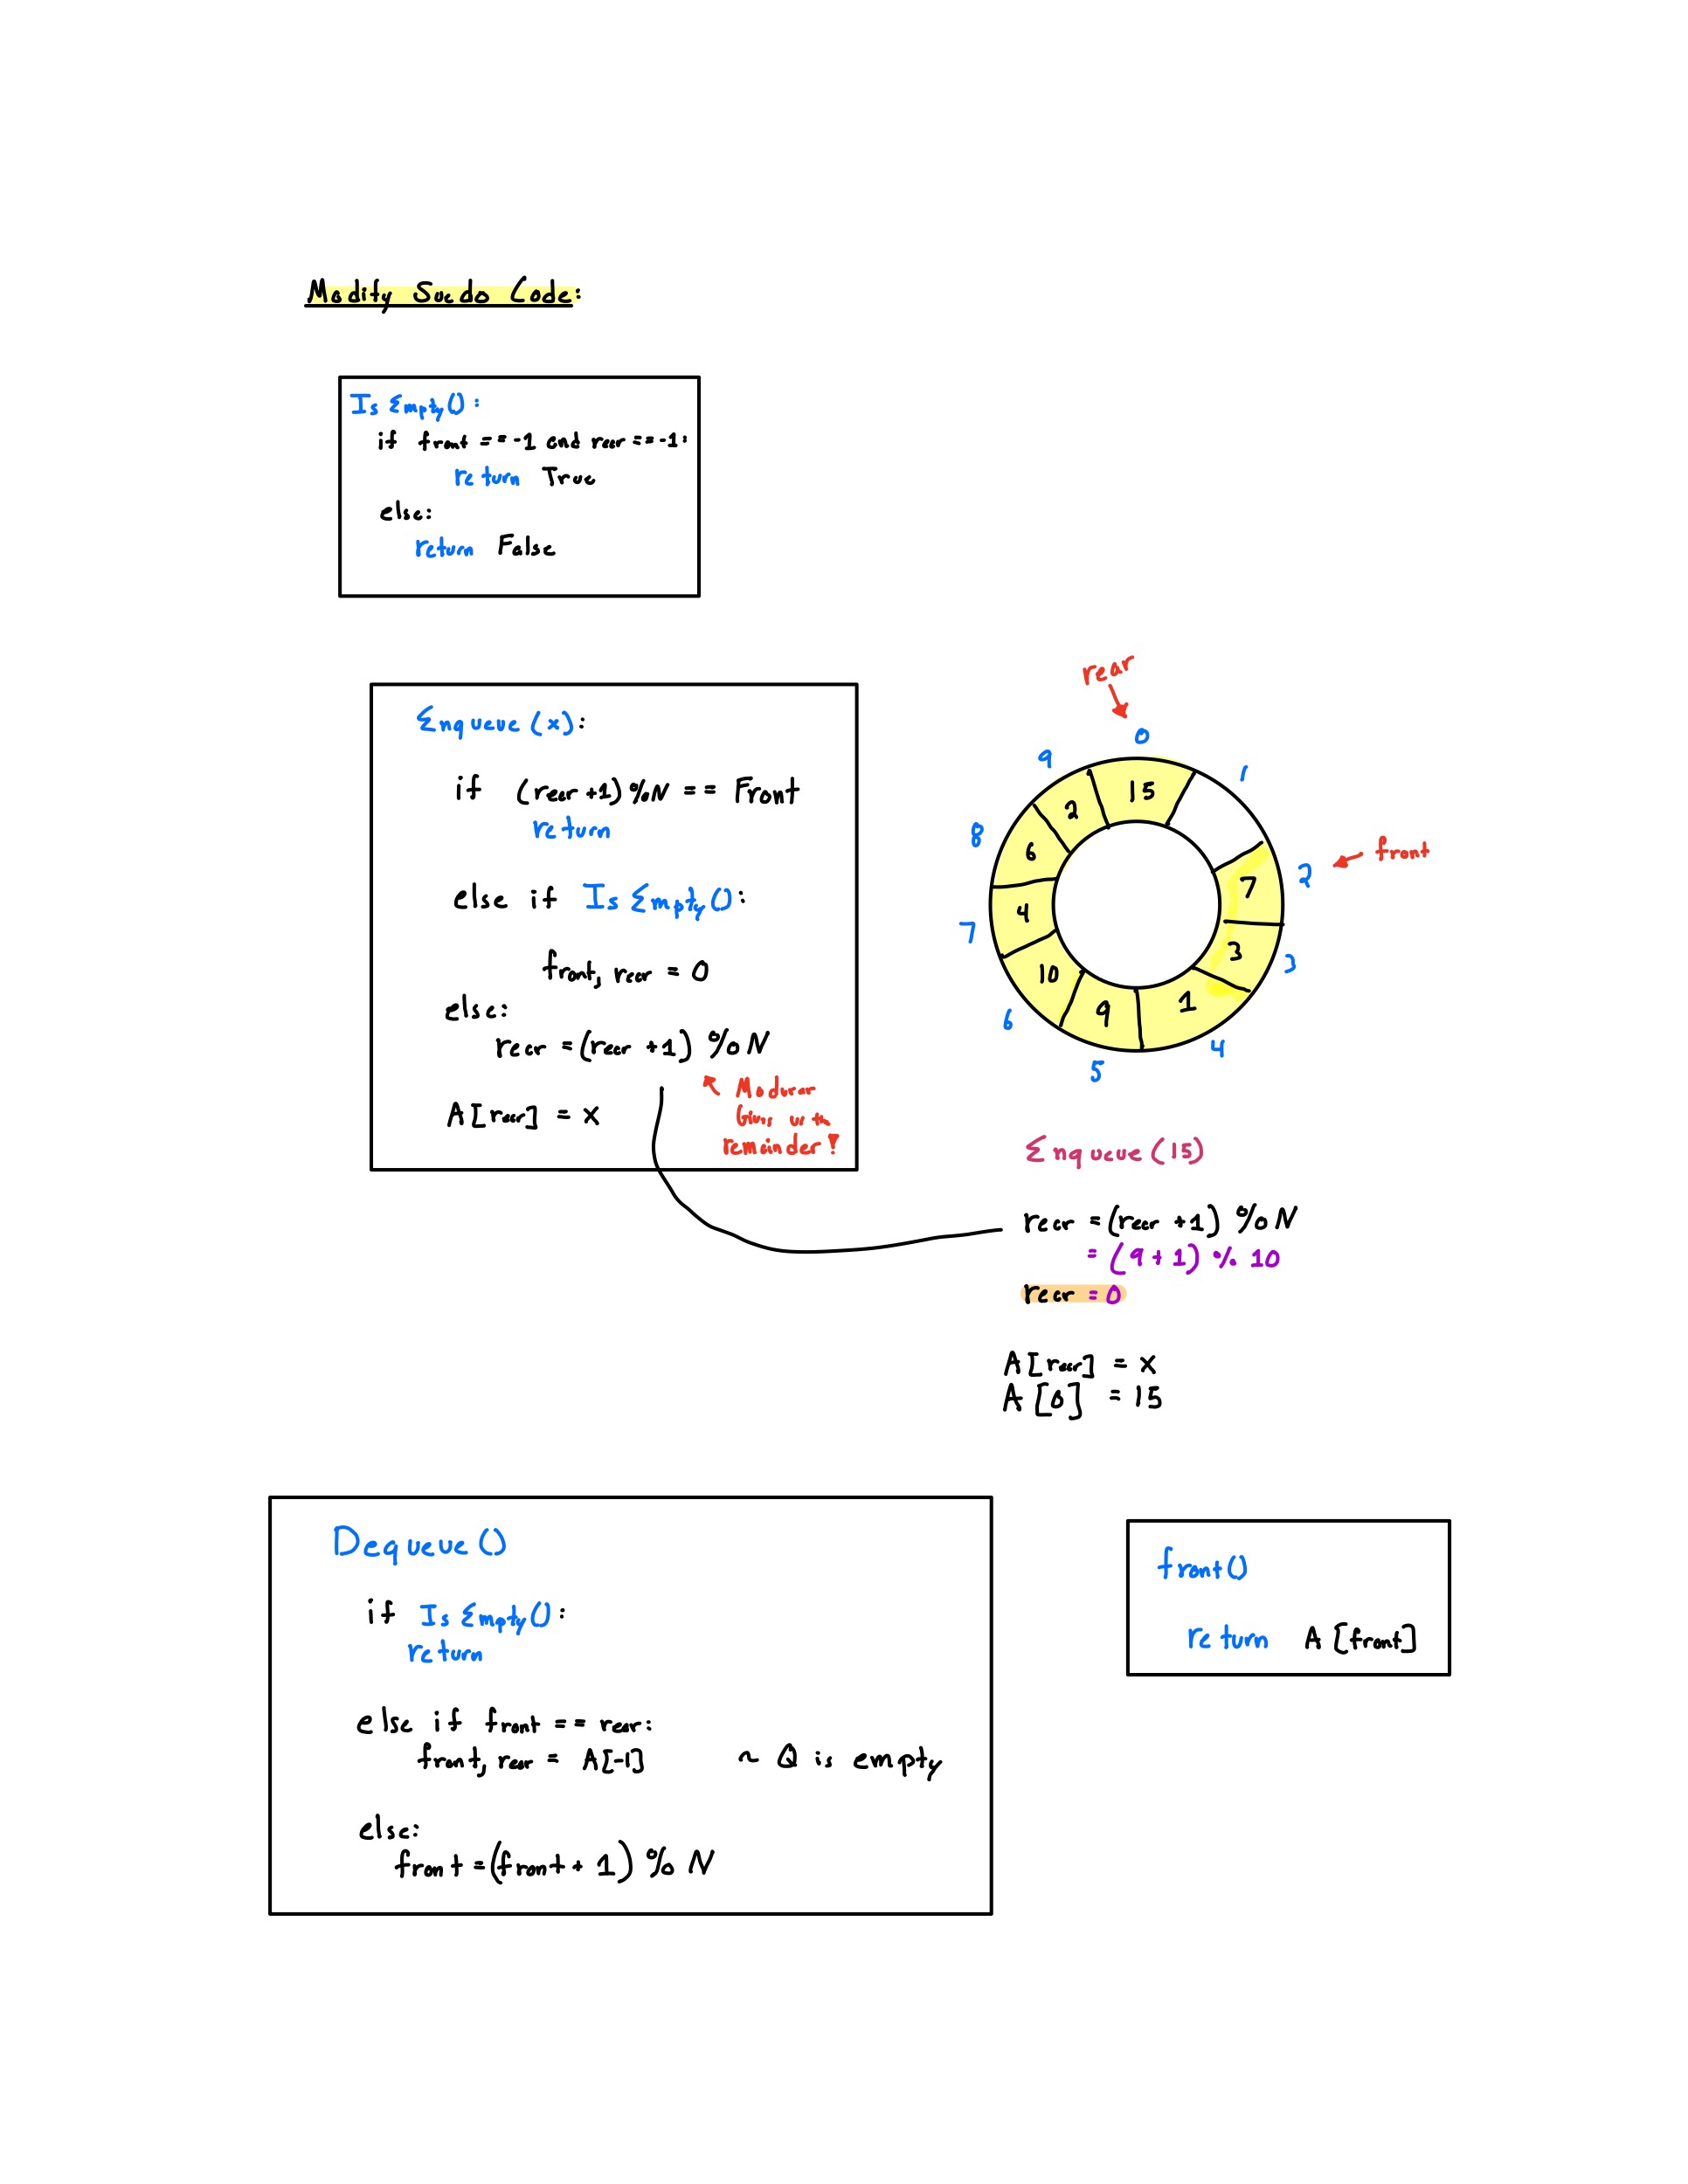 Modify Suedo Code:
Is Empty():
if front == -1 and rear == -1:
return True
else:
return False
Enqueue (x):
if (rear +1) %N == Front
return
else if Is Empty():
front, rear = 0
else:
rear = (rear +1) %N
A[rear] = x
Gives us the
remainder!
rear
0
1
2
3
4
5
6
7
8
9
front
15
7
3
1
9
10
4
6
2
Enqueue (15)
rear = (rear +1) %N
= (9+1) % 10
rear = 0
A[rear] = x
A[0] = 15
Dequeue()
if Is Empty():
return
else if front == rear:
front, rear = A[-1] ~ Q is empty
else:
front = (front + 1) % N
front()
return A [front]